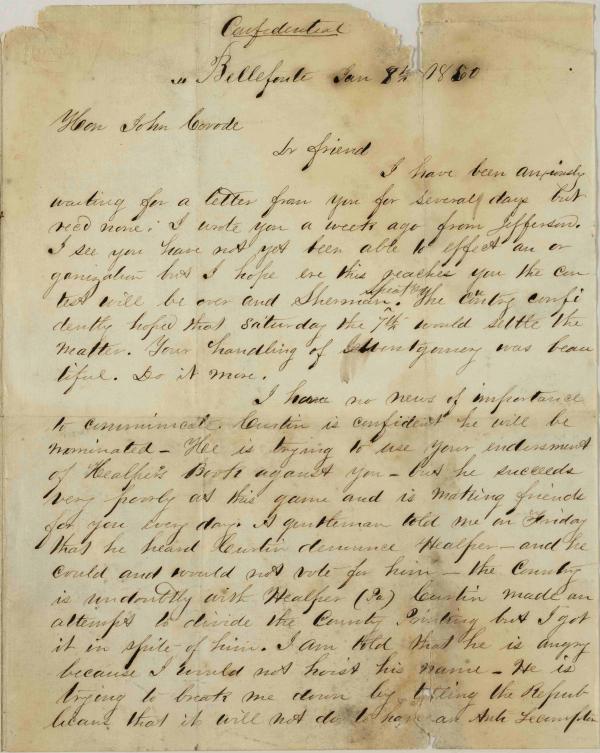 Confidential
Bellefonte Jan 8th 1860
Hon John Covode
Dr friend
I have been anxiously
waiting for a letter from you for several days but
recd none. I wrote you a week ago from Jefferson.
I see you have not yet been able to effect an or
ganization but I hope ere this reaches you the con
test will be over and Sherman Speaker. The Cntry confi
dently hoped that Saturday the 7th would settle the
matter. Your handling of Montgomery was beau
tiful. Do it more.
I have no news of importance
to communicate. Curtin is confident he will be
nominated - He is trying to use your endorsment
of Healper's Book against you - but he succeeds
very poorly at this game and is making friends
for you every day. A gentleman told me on Friday
that he heard Curtin denounce Healper - and he
could and would not vote for him - the County
is undoubtly with Healper (Pa) Curtin made an
attempt to divide the County Printing but I got
it in spite of him. I am told that he is angry
because I would not hoist his name - He is
trying to break me down by telling the Repub
licans that it will not do to have an Anti Lecompton